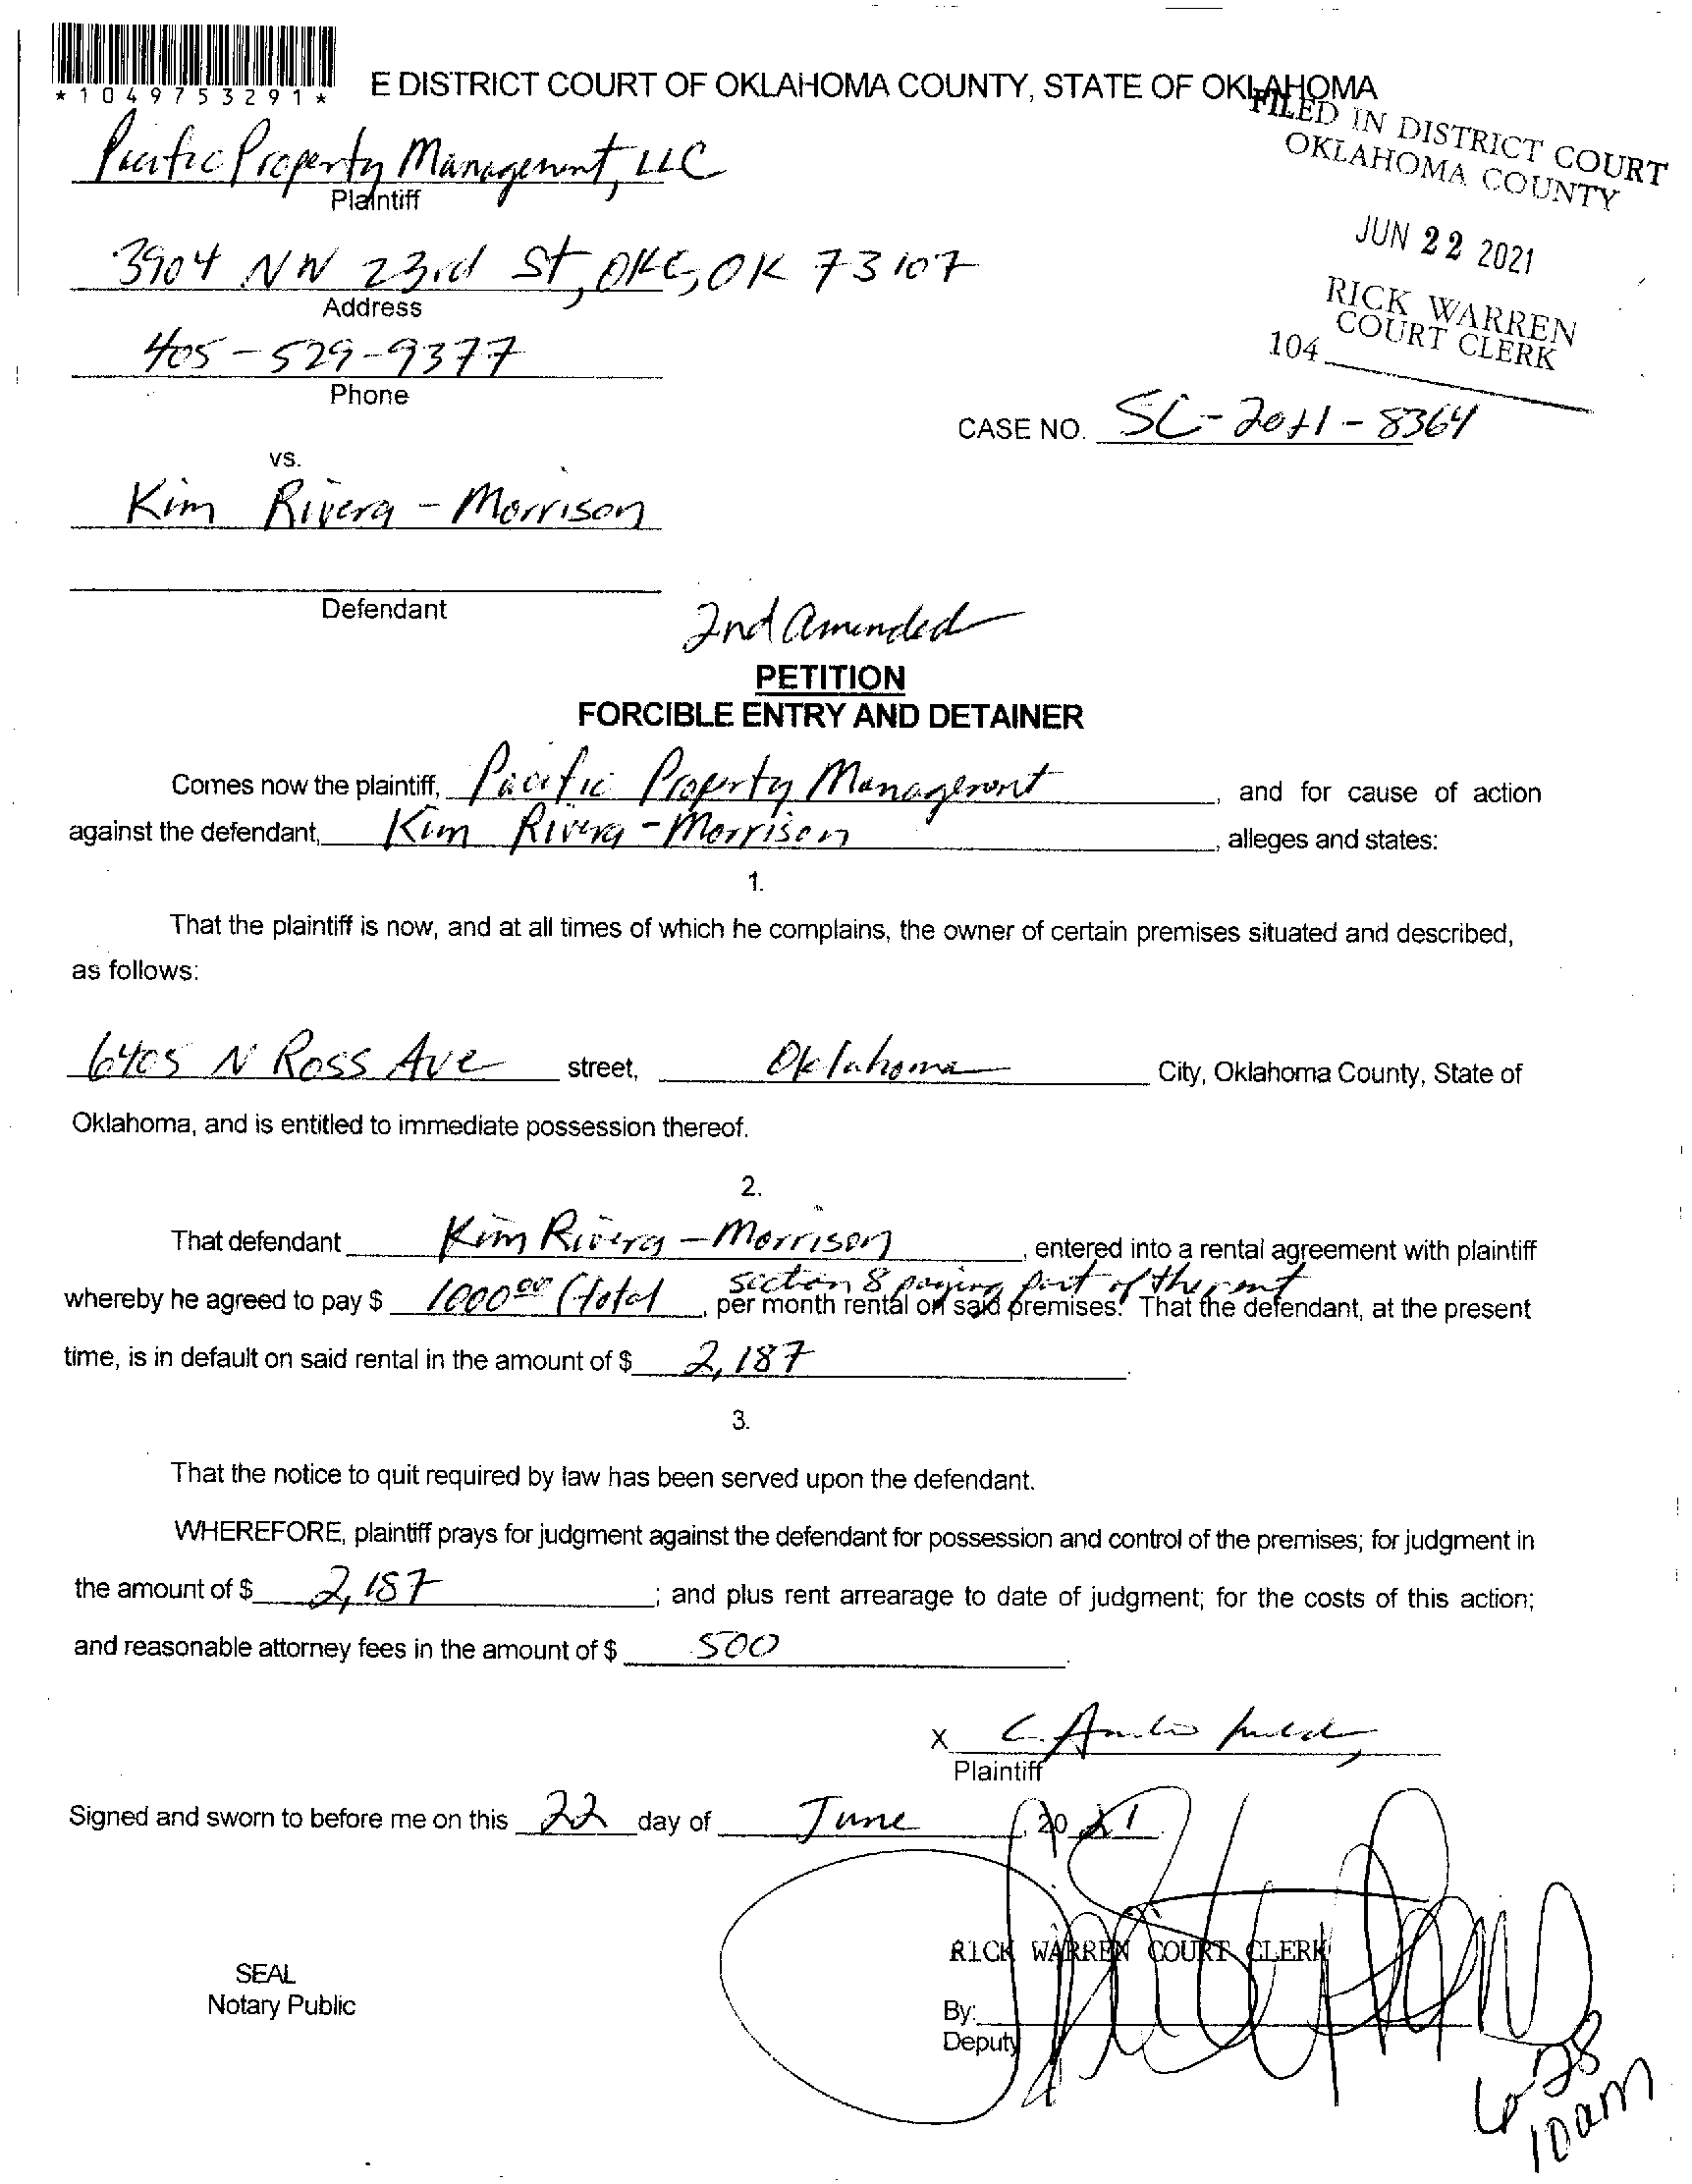 *1049753291*
E DISTRICT COURT OF OKLAHOMA COUNTY, STATE OF OKLAHOMA
FILED IN DISTRICT COURT
OKLAHOMA COUNTY
JUN 22 2021
RICK WARREN
COURT CLERK
104
Pacific Property Management, LLC
Plaintiff
3904 NW 23rd St, OKC, OK 73107
Address
405-529-9377
Phone
CASE NO. SC-2021-8364
vs.
Kim Rivera-Morrison
Defendant
2nd Amended
PETITION
FORCIBLE ENTRY AND DETAINER
Comes now the plaintiff, Pacific Property Management, and for cause of action
against the defendant, Kim Rivera-Morrison, alleges and states:
1.
That the plaintiff is now, and at all times of which he complains, the owner of certain premises situated and described,
as follows:
6405 N Ross Ave street, Oklahoma City, Oklahoma County, State of
Oklahoma, and is entitled to immediate possession thereof.
2.
That defendant Kim Rivera-Morrison, entered into a rental agreement with plaintiff
section 8 paying part of the rent
whereby he agreed to pay $ 1000.00 (total, per month rental on said premises. That the defendant, at the present
time, is in default on said rental in the amount of $ 2,187.
3.
That the notice to quit required by law has been served upon the defendant.
WHEREFORE, plaintiff prays for judgment against the defendant for possession and control of the premises; for judgment in
the amount of $ 2,187; and plus rent arrearage to date of judgment; for the costs of this action;
and reasonable attorney fees in the amount of $ 500.
X
Plaintiff
Signed and sworn to before me on this 22 day of June, 2021.
RICK WARREN COURT CLERK
SEAL
Notary Public
By:
Deputy
6-28
10am